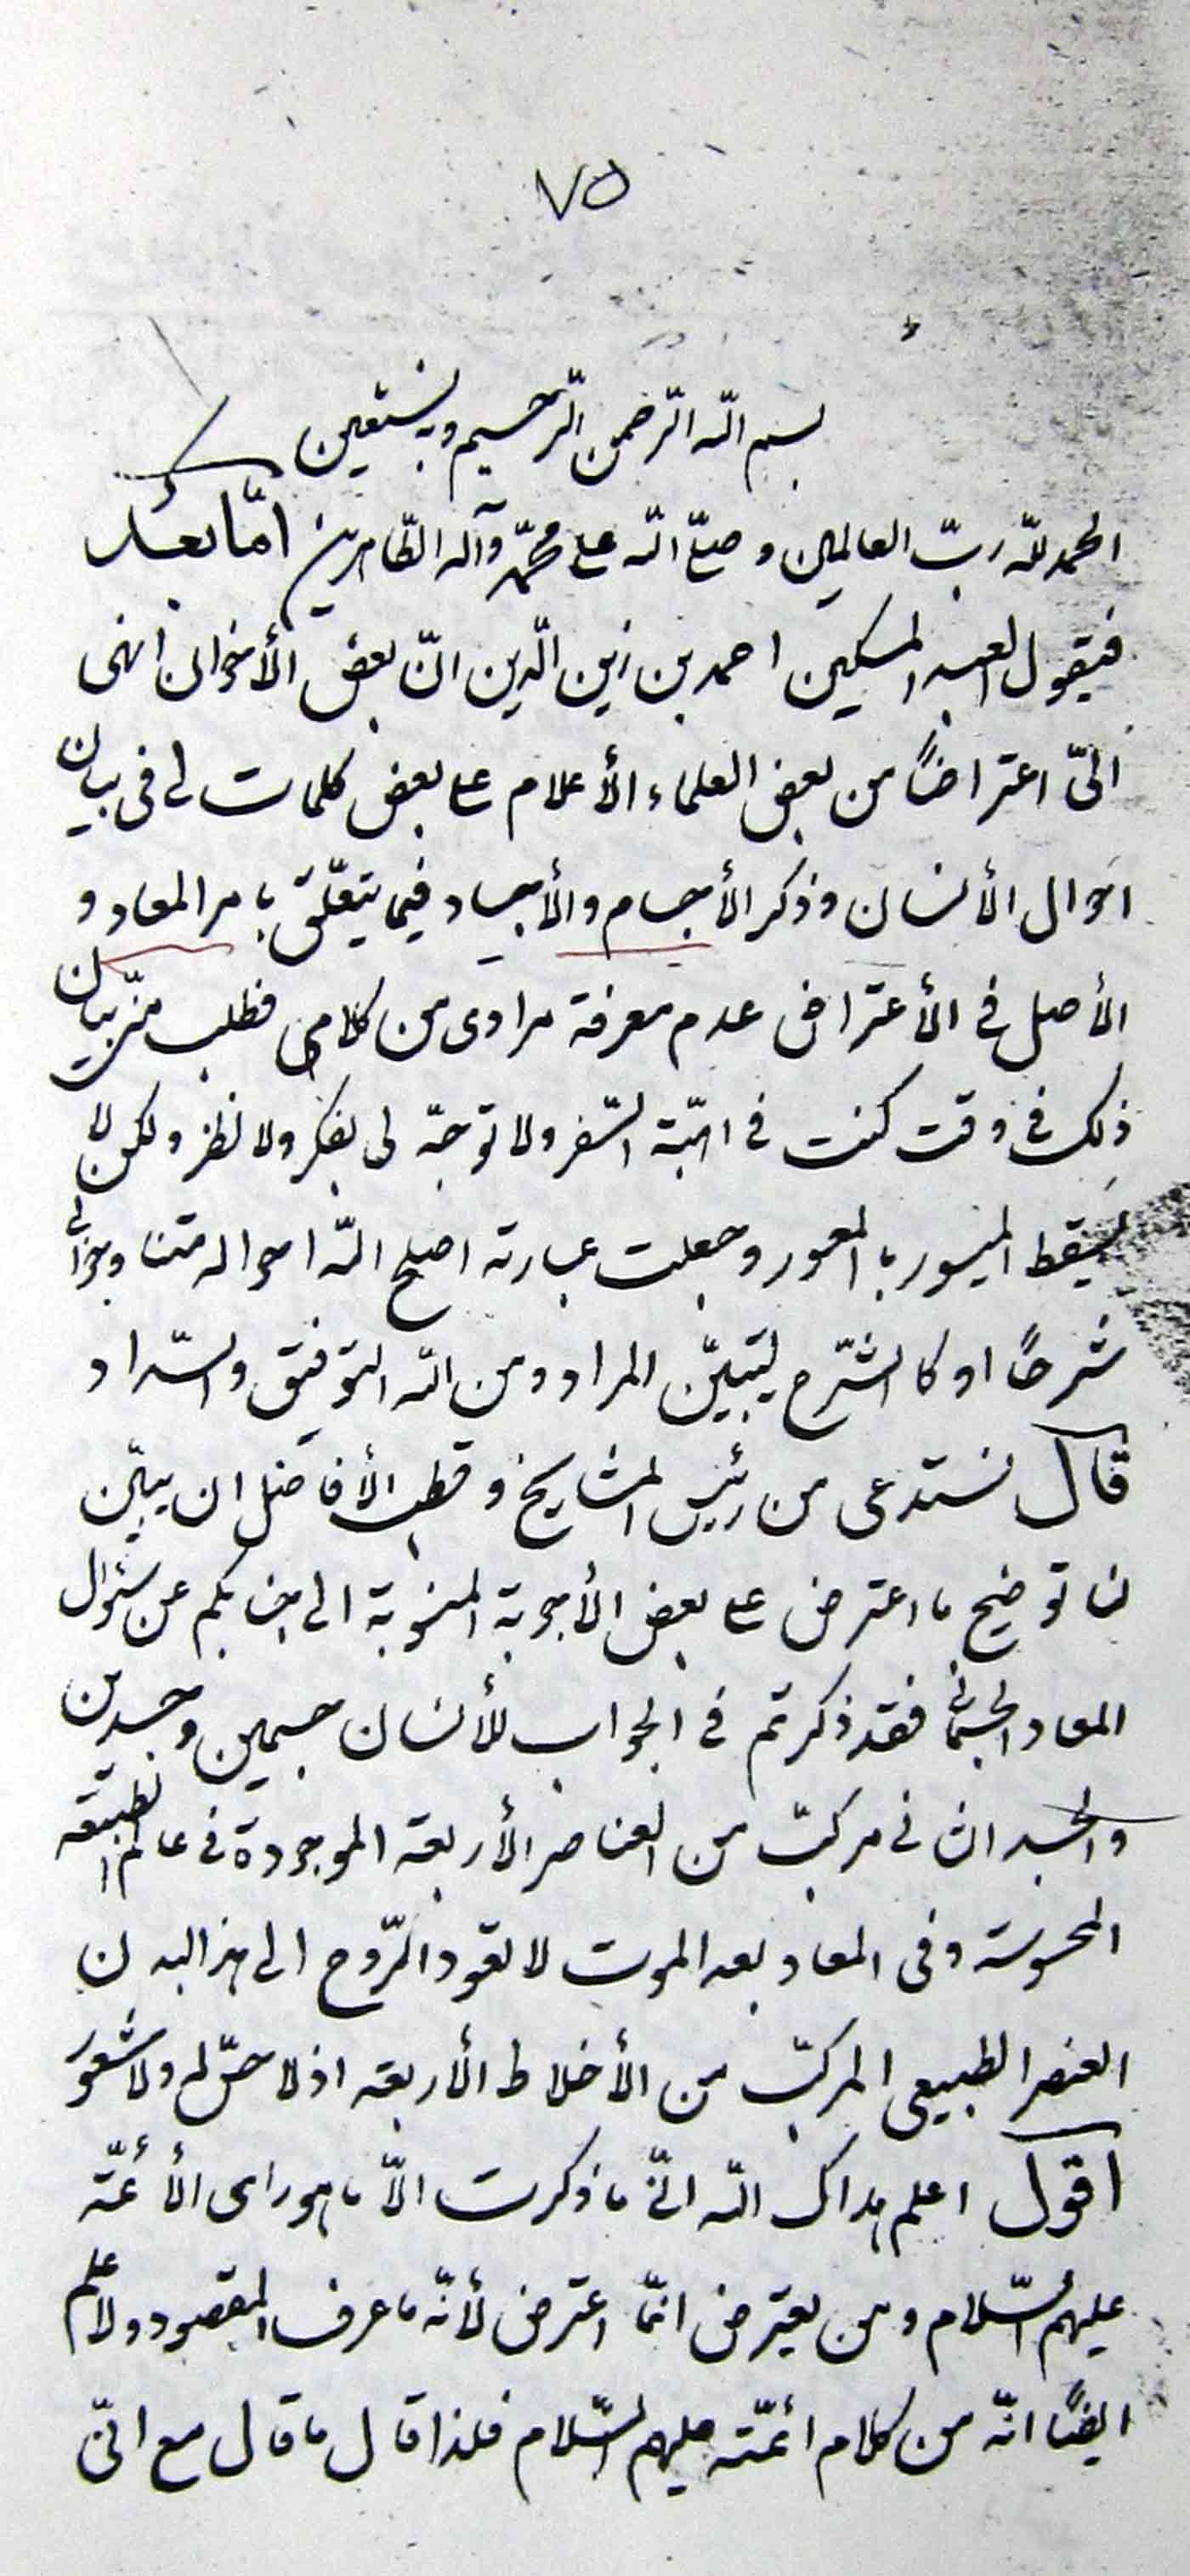 ٧٥
بسم الله الرّحمن الرّحيم وبه نستعين
الحمد للّه ربّ العالمين و صلّى اللّه على محمّد وآله الطّاهرين امّا بعد
فيقول العبد المسكين احمد بن زين الّدين انّ بعض الأخوان انهى
الىّ اعتراضاً من بعض العلماء الأعلام على بعض كلمات لى فى بيان
احوال الأنسان وذكر الأجسام والأجساد فيما يتعلّق بامر المعاد و
الأصل فى الأعتراض عدم معرفة مرادى من كلامى فطلب منّى بيان
ذلك فى وقت كنت فى اهبّة السّفر ولا توجّه لى بفكر ولا نظر ولكن لا
يسقط الميسور بالمعسور وجعلت عبارته اصلح اللّه احواله متنا وجوابى
شرحاً او كالشّرح ليتبيّن المراد ومن اللّه التّوفيق والسّداد
قال نستدعى من رئيس المشايخ وقطب الأفاضل ان يبيّن
لنا توضيح ما اعترض على بعض الأجوبة المنسوبة الى جنابكم عن سئوال
المعاد الجسمانى فقد ذكرتم فى الجواب للأنسان جسمين وجسدين
والجسد الثانى مركبّ من العناصر الأربعة الموجودة فى عالم الطبيعة
المحسوسة وفى المعاد بعد الموت لا تعود الرّوح الى هذا البدن
العنصر الطبيعى المركبّ من الأخلاط الأربعة اذ لا حسّ له ولا شعور
اقول اعلم هداك اللّه انّى ما ذكرت الاّ ما هو راى الأئمّة
عليهم السّلام ومن يعترض انمّا اعترض لأنّه ما عرف المقصود ولا علم
ايضاً انّه من كلام ائمّته عليهم السّلام فلذا قال ما قال مع انّى